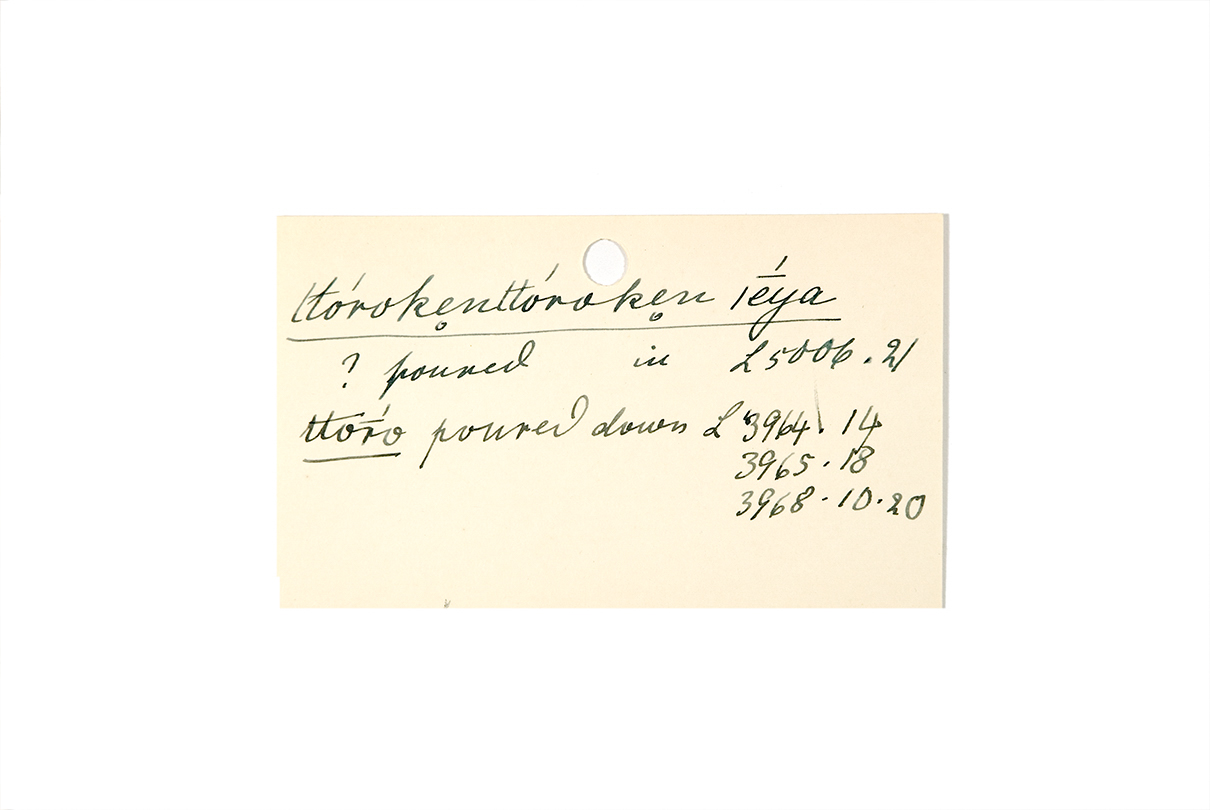 ttórokẹnttórokẹn ı̄́ḗya
? poured in L 5006.21
ttṓro poured down L 3964.14
3965.18
3968.10.20